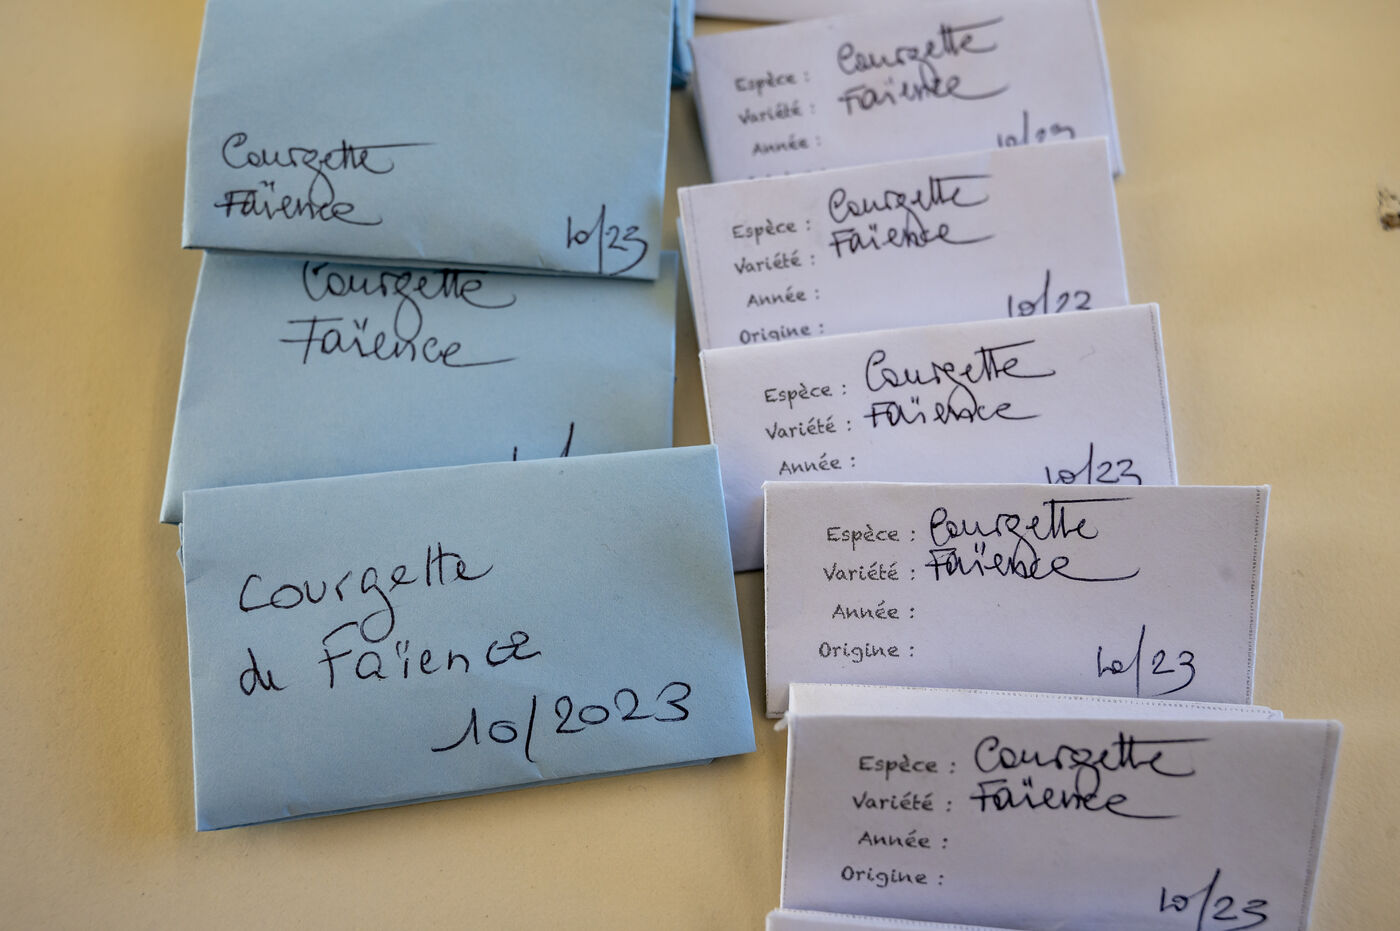 Courgette
Faïence
10/23
Courgette
Faïence
Courgette
de Faïence
10/2023
Espèce : Courgette
Variété : Faïence
Année :
10/23
Espèce : Courgette
Variété : Faïence
Année :
10/23
Origine :
Espèce : Courgette
Variété : Faïence
Année :
10/23
Espèce : Courgette
Variété : Faïence
Année :
Origine :
10/23
Espèce : Courgette
Variété : Faïence
Année :
Origine :
10/23